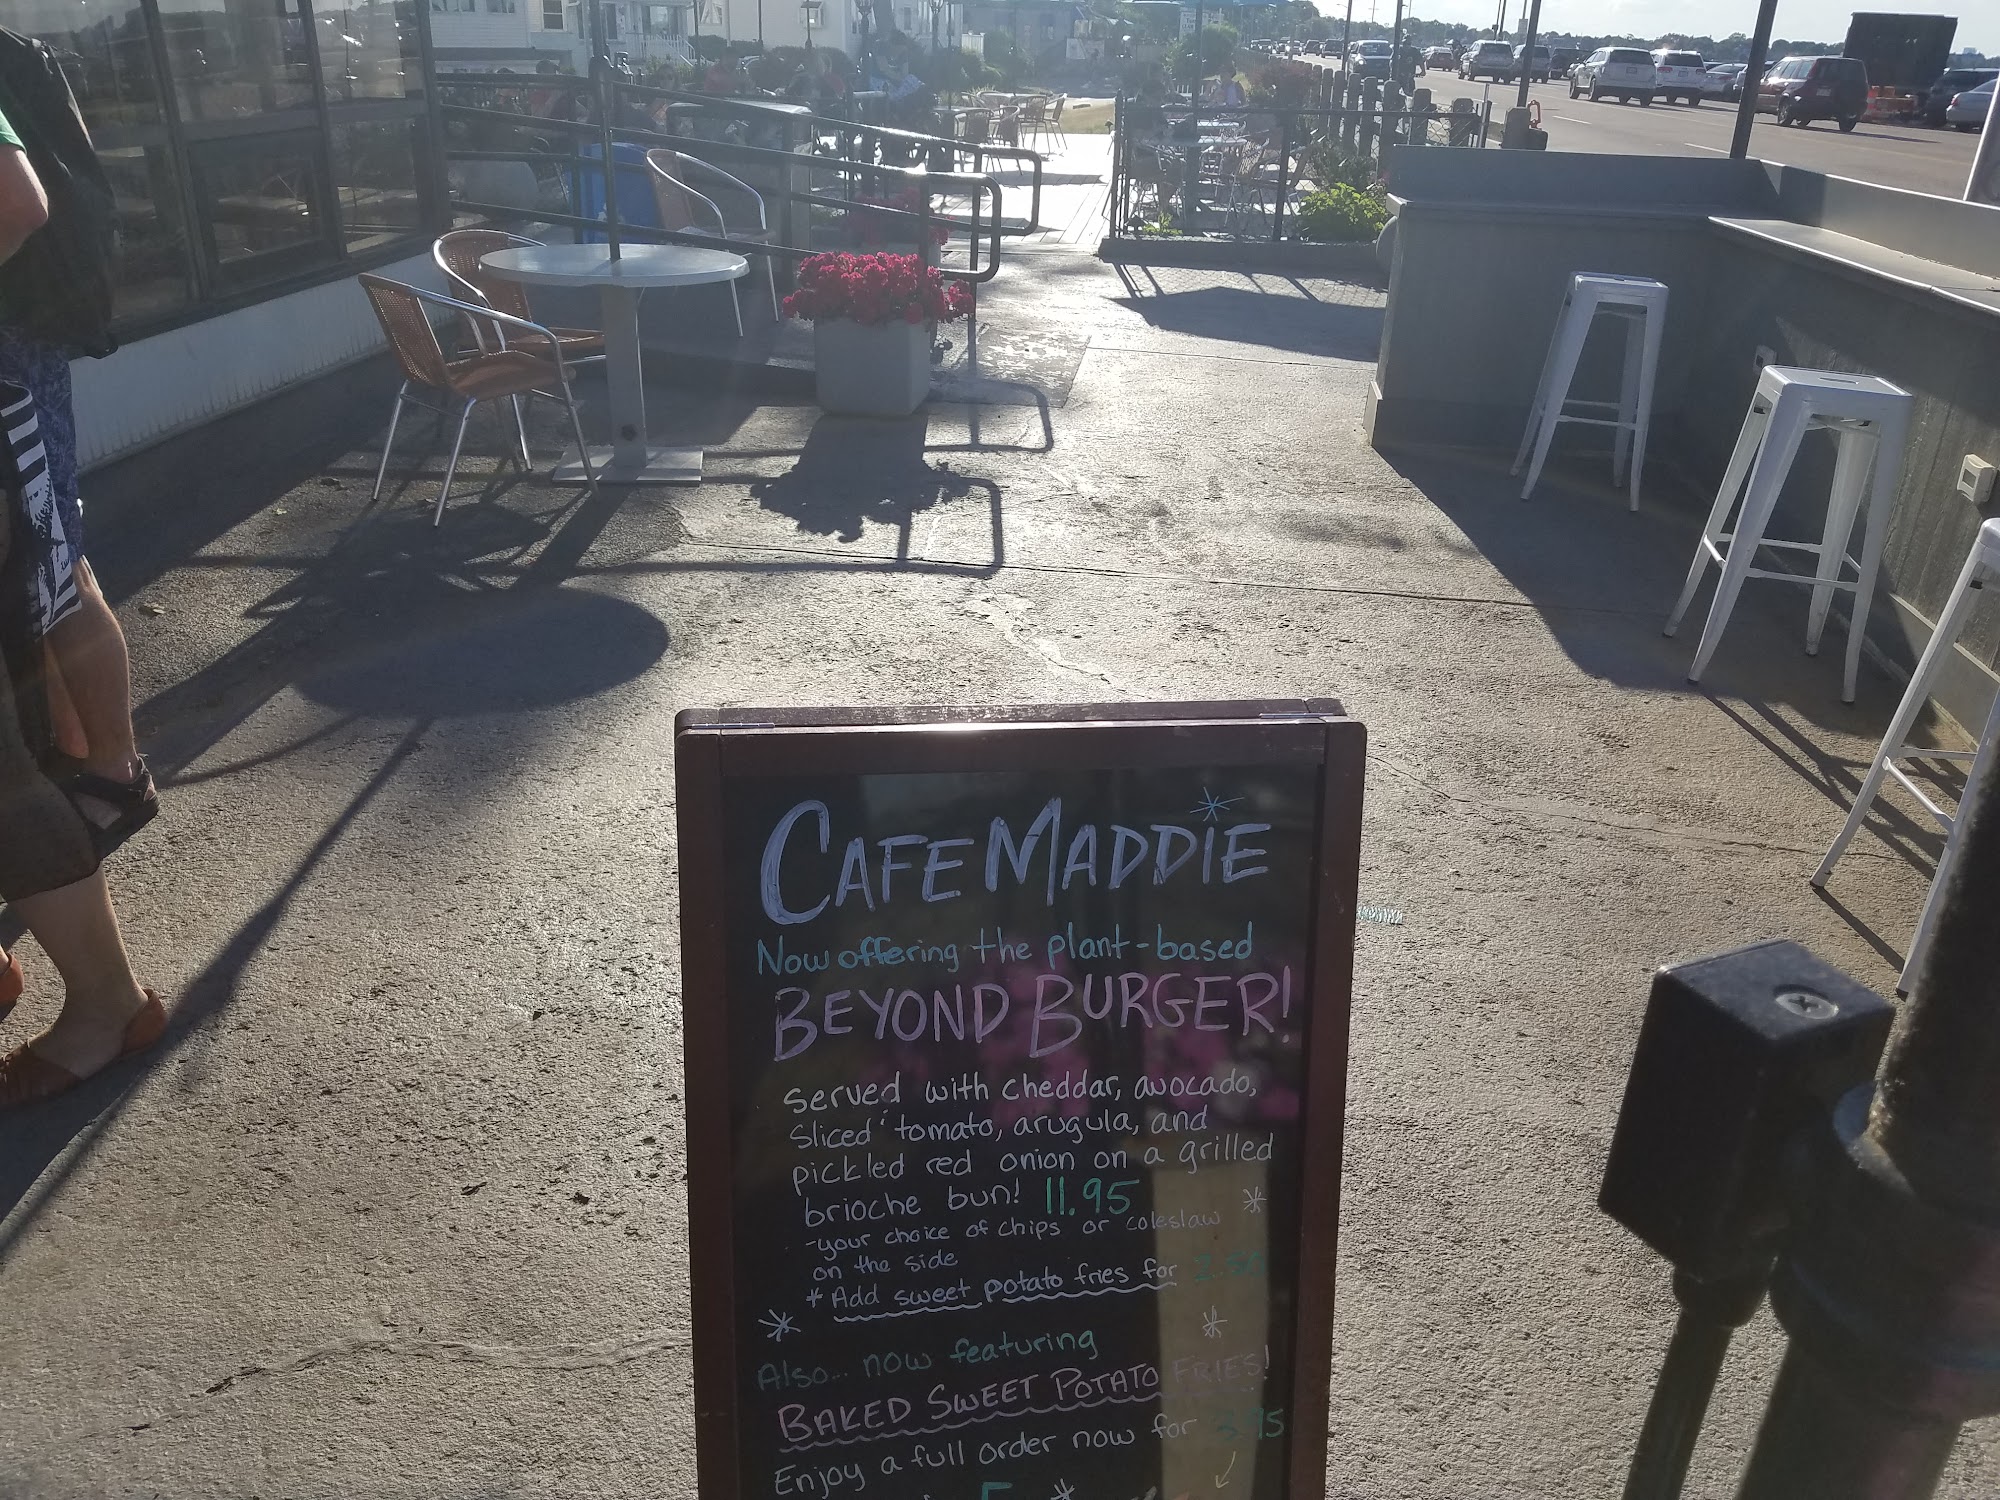 CAFE MADDIE
Now offering the plant-based
BEYOND BURGER!
served with cheddar, avocado,
sliced tomato, arugula, and
pickled red onion on a grilled
brioche bun! 11.95
-your choice of chips or coleslaw
on the side
* Add sweet potato fries for
Also... now featuring
BAKED SWEET POTATO FRIES!
Enjoy a full order now for 3.95